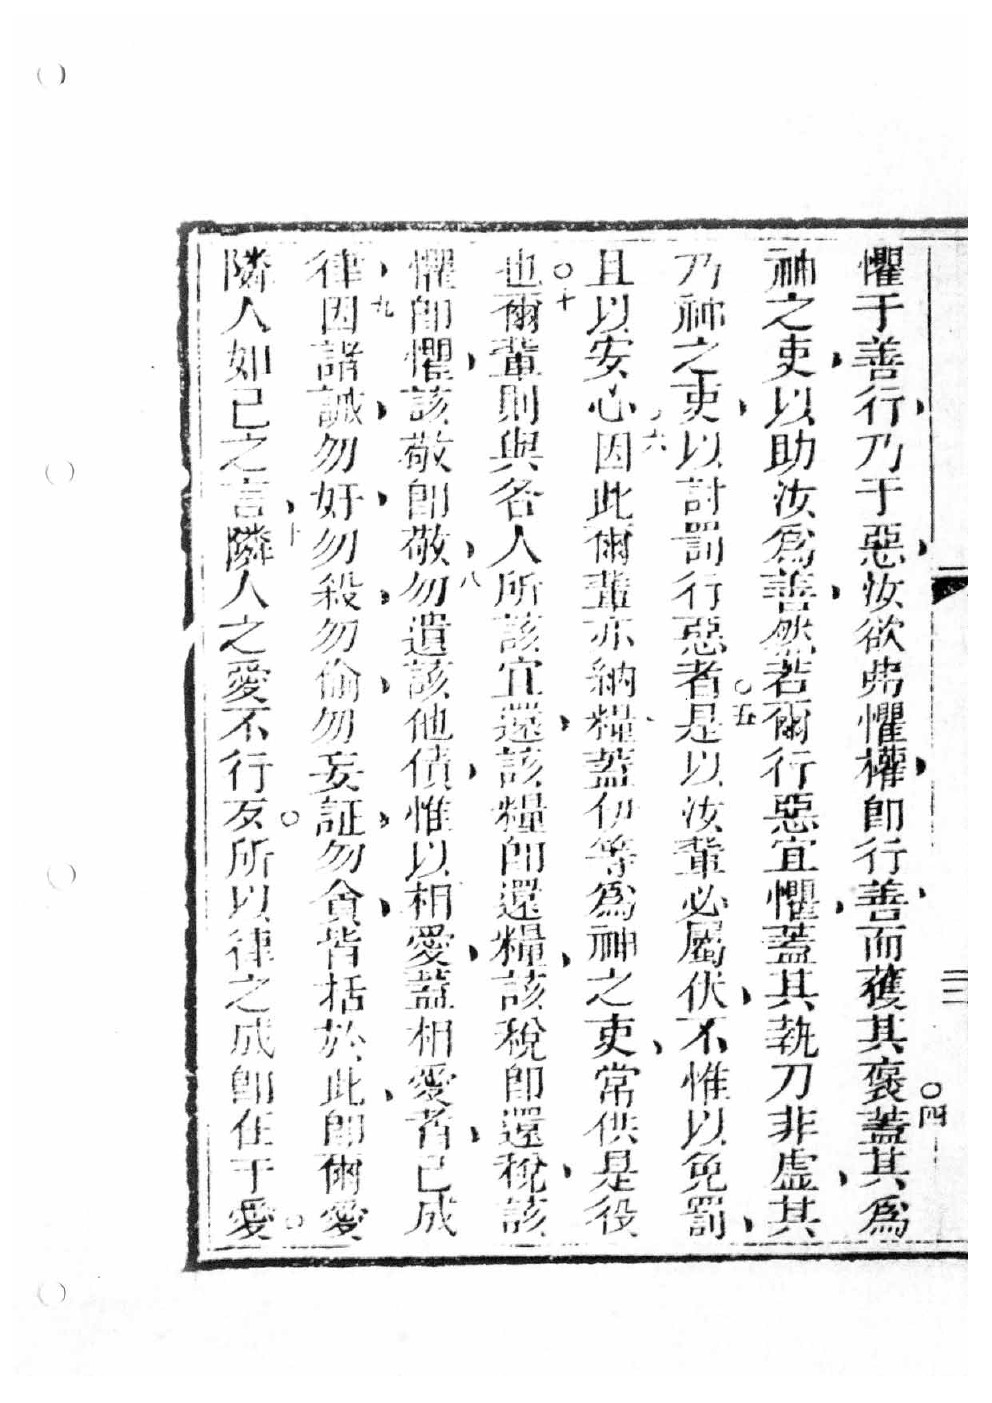 懼于善行乃于惡汝欲弗懼權卽行善而獲其褒○四蓋其爲
神之吏以助汝爲善然若爾行惡宜懼蓋其執刀非虛其
乃神之吏以討罰行惡者○五是以汝輩必屬伏不惟以免罰
且以安心六因此爾輩亦納糧蓋伊等爲神之吏常供是役
也○十爾輩則與各人所該宜還該糧卽還糧該稅卽還稅該
懼卽懼該敬卽敬八勿遺該他債惟以相愛蓋相愛者已成
律九因諸誡勿奸勿殺勿偷勿妄証勿貪皆括於此卽爾愛
隣人如己之言十隣人之愛不行歹○所以律之成卽在于愛○
三